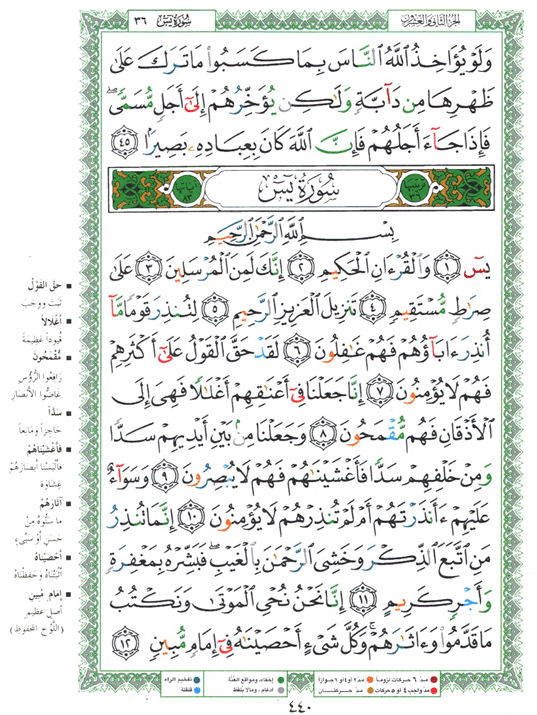 الجزء الثاني والعشرون
سورة يس ٣٦
وَلَوْ يُؤَاخِذُ ٱللَّهُ ٱلنَّاسَ بِمَا كَسَبُوا۟ مَا تَرَكَ عَلَىٰ
ظَهْرِهَا مِن دَآبَّةٍ وَلَـٰكِن يُؤَخِّرُهُمْ إِلَىٰٓ أَجَلٍ مُّسَمًّى ۖ
فَإِذَا جَآءَ أَجَلُهُمْ فَإِنَّ ٱللَّهَ كَانَ بِعِبَادِهِۦ بَصِيرًۢا ٤٥
ترتيبها ٣٦ سُورَةُ يسٓ آياتها ٨٣
بِسْمِ ٱللَّهِ ٱلرَّحْمَـٰنِ ٱلرَّحِيمِ
يسٓ ١ وَٱلْقُرْءَانِ ٱلْحَكِيمِ ٢ إِنَّكَ لَمِنَ ٱلْمُرْسَلِينَ ٣ عَلَىٰ
صِرَٰطٍ مُّسْتَقِيمٍ ٤ تَنزِيلَ ٱلْعَزِيزِ ٱلرَّحِيمِ ٥ لِتُنذِرَ قَوْمًا مَّآ
أُنذِرَ ءَابَآؤُهُمْ فَهُمْ غَـٰفِلُونَ ٦ لَقَدْ حَقَّ ٱلْقَوْلُ عَلَىٰٓ أَكْثَرِهِمْ
فَهُمْ لَا يُؤْمِنُونَ ٧ إِنَّا جَعَلْنَا فِىٓ أَعْنَـٰقِهِمْ أَغْلَـٰلًا فَهِىَ إِلَى
ٱلْأَذْقَانِ فَهُم مُّقْمَحُونَ ٨ وَجَعَلْنَا مِنۢ بَيْنِ أَيْدِيهِمْ سَدًّا
وَمِنْ خَلْفِهِمْ سَدًّا فَأَغْشَيْنَـٰهُمْ فَهُمْ لَا يُبْصِرُونَ ٩ وَسَوَآءٌ
عَلَيْهِمْ ءَأَنذَرْتَهُمْ أَمْ لَمْ تُنذِرْهُمْ لَا يُؤْمِنُونَ ١٠ إِنَّمَا تُنذِرُ
مَنِ ٱتَّبَعَ ٱلذِّكْرَ وَخَشِىَ ٱلرَّحْمَـٰنَ بِٱلْغَيْبِ ۖ فَبَشِّرْهُ بِمَغْفِرَةٍ
وَأَجْرٍ كَرِيمٍ ١١ إِنَّا نَحْنُ نُحْىِ ٱلْمَوْتَىٰ وَنَكْتُبُ
مَا قَدَّمُوا۟ وَءَاثَـٰرَهُمْ ۚ وَكُلَّ شَىْءٍ أَحْصَيْنَـٰهُ فِىٓ إِمَامٍ مُّبِينٍ ١٢
■ حقَّ القَوْلُ
ثَبَتَ وَوجَبَ
■ أغْلالاً
قُيوداً عَظِيمَةً
■ مُقْمَحُونَ
رَافِعُوا الرُّؤُسِ
غَاضُّوا الأبْصَارِ
■ سَدّاً
حَاجِزاً ومَانِعاً
■ فَأغْشَيْنَاهُمْ
فَألْبَسْنَا أبْصَارَهُمْ
غِشَاوَة
■ آثَارَهُمْ
ما سَنُّوهُ مِنْ
حَسَنٍ أوْ سَيِّىءٍ
■ أحْصَيْنَاهُ
أثْبَتْنَاهُ وحَفِظْنَاهُ
■ إمَامٍ مُبينٍ
أصْلٍ عظيمٍ
(اللَّوْحِ المَحْفوظِ)
مدّ ٦ حركات لزوماً مدّ ٢ أو ٤ أو ٦ جوازاً
مدّ واجب ٤ أو ٥ حركات مدّ حركتان
إخفاء، ومواقع الغُنَّة تفخيم الراء
ادغام، ومالا يُلفَظ قلقلة
٤٤٠